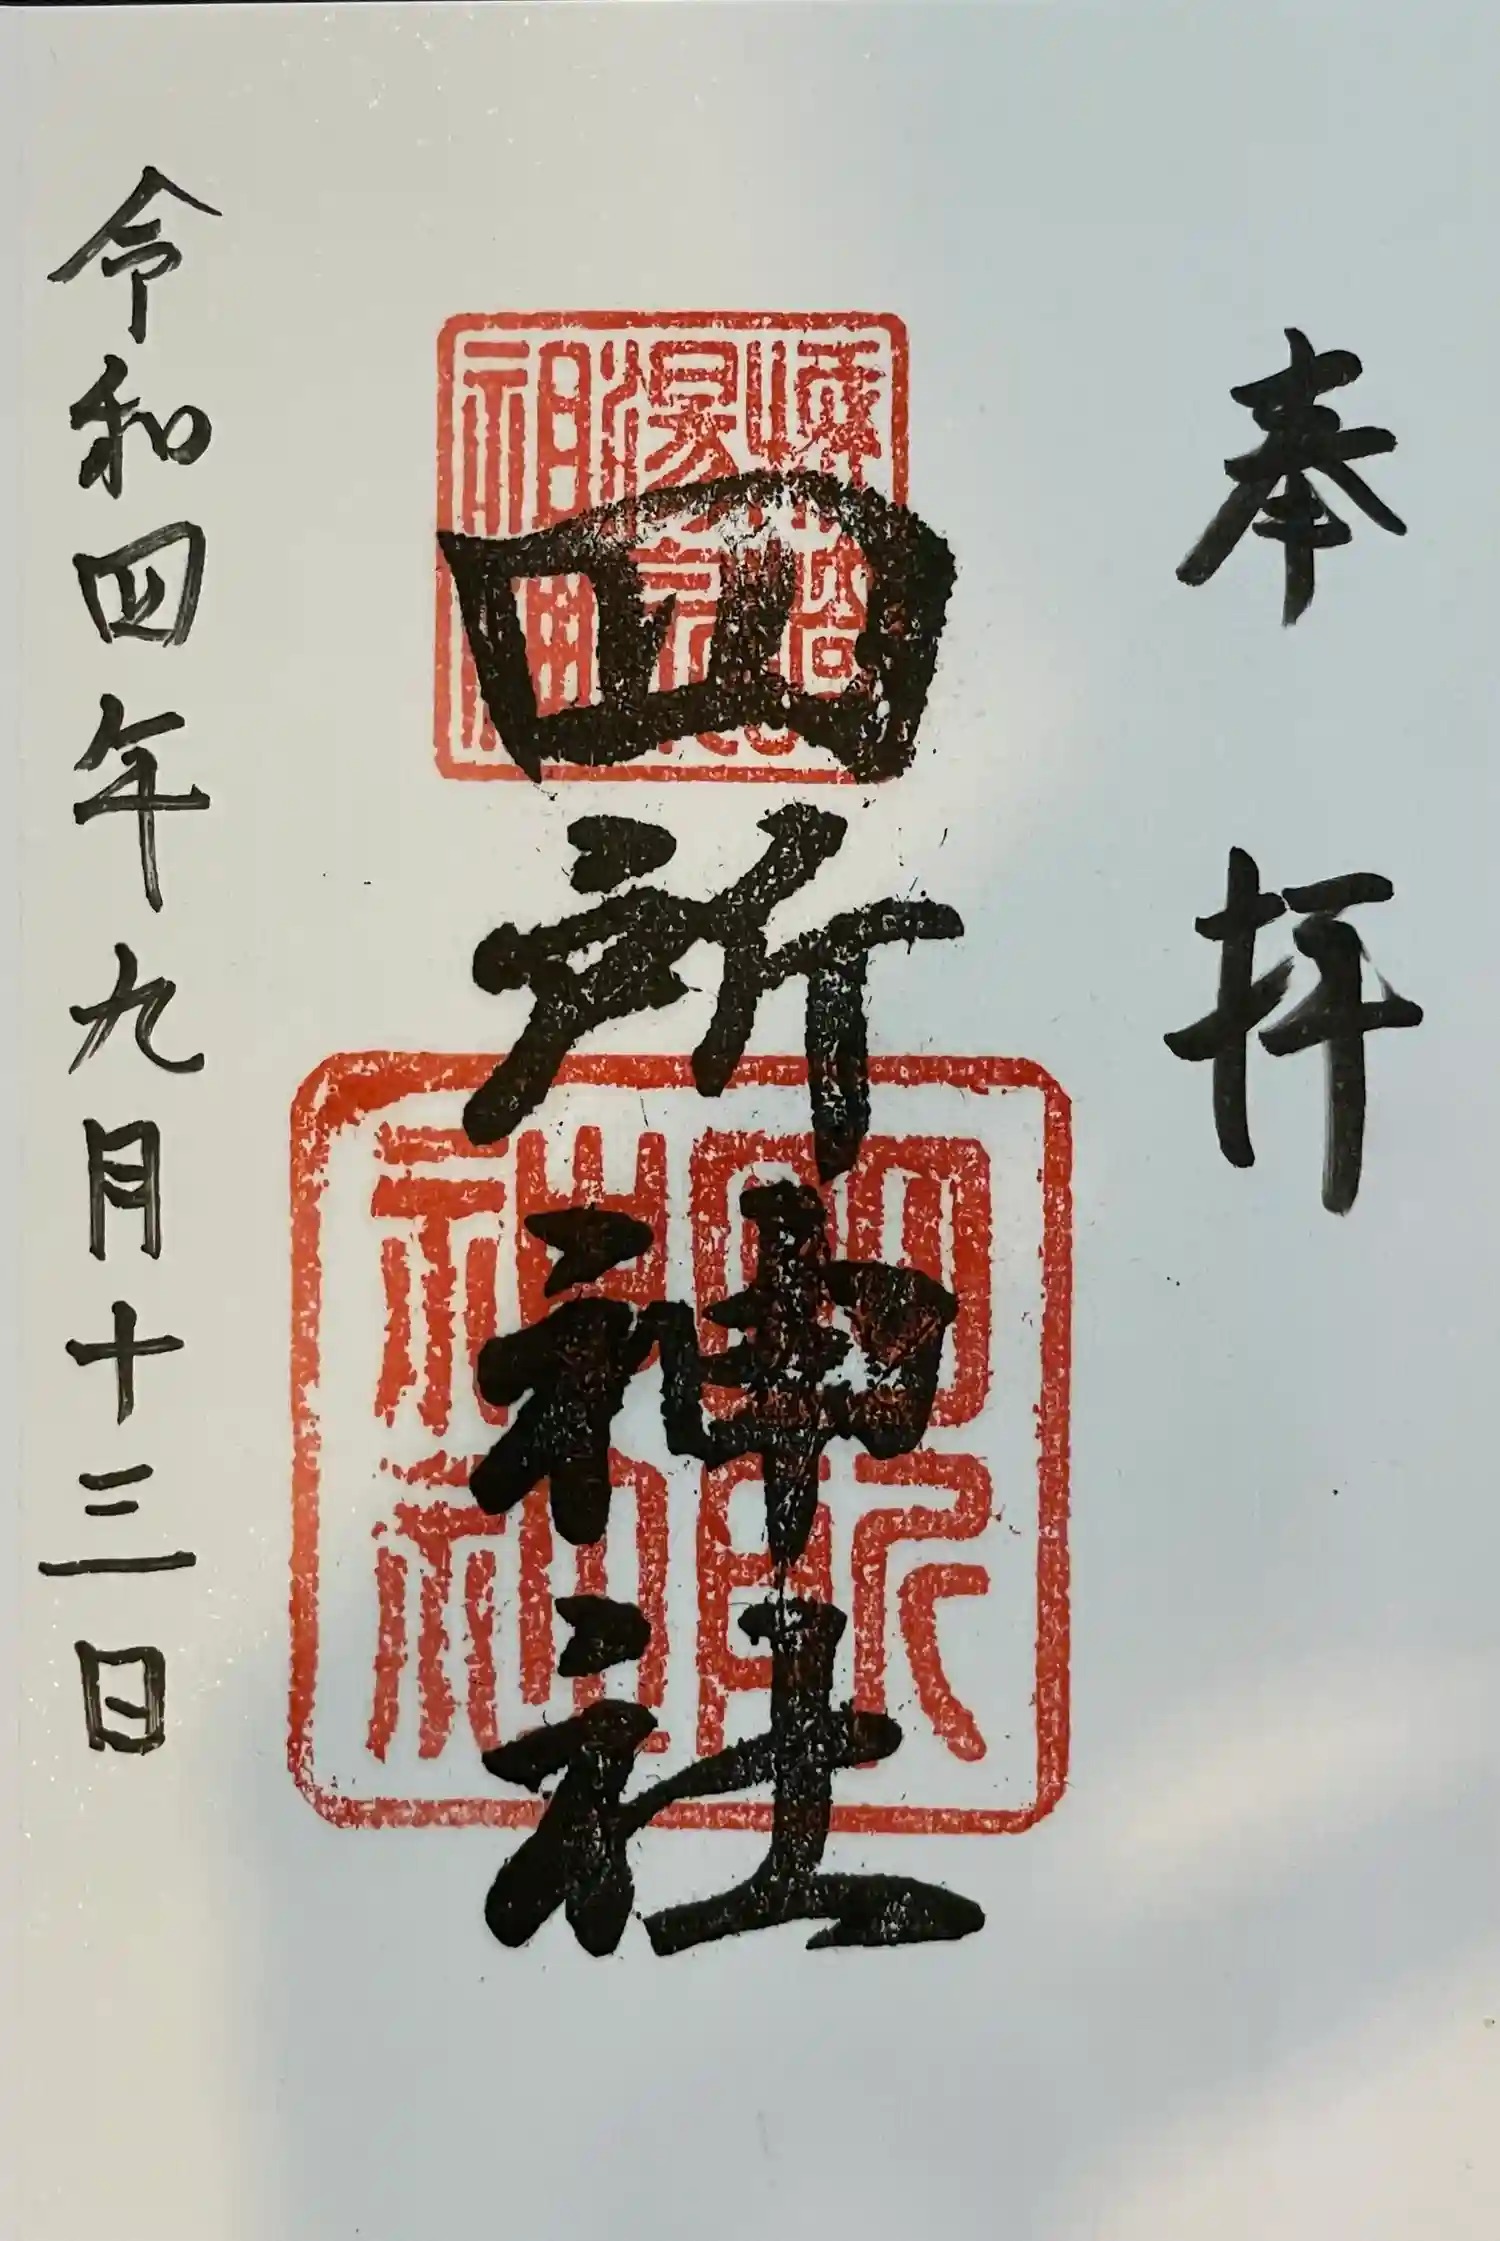 奉拝
四所神社
令和四年九月十三日